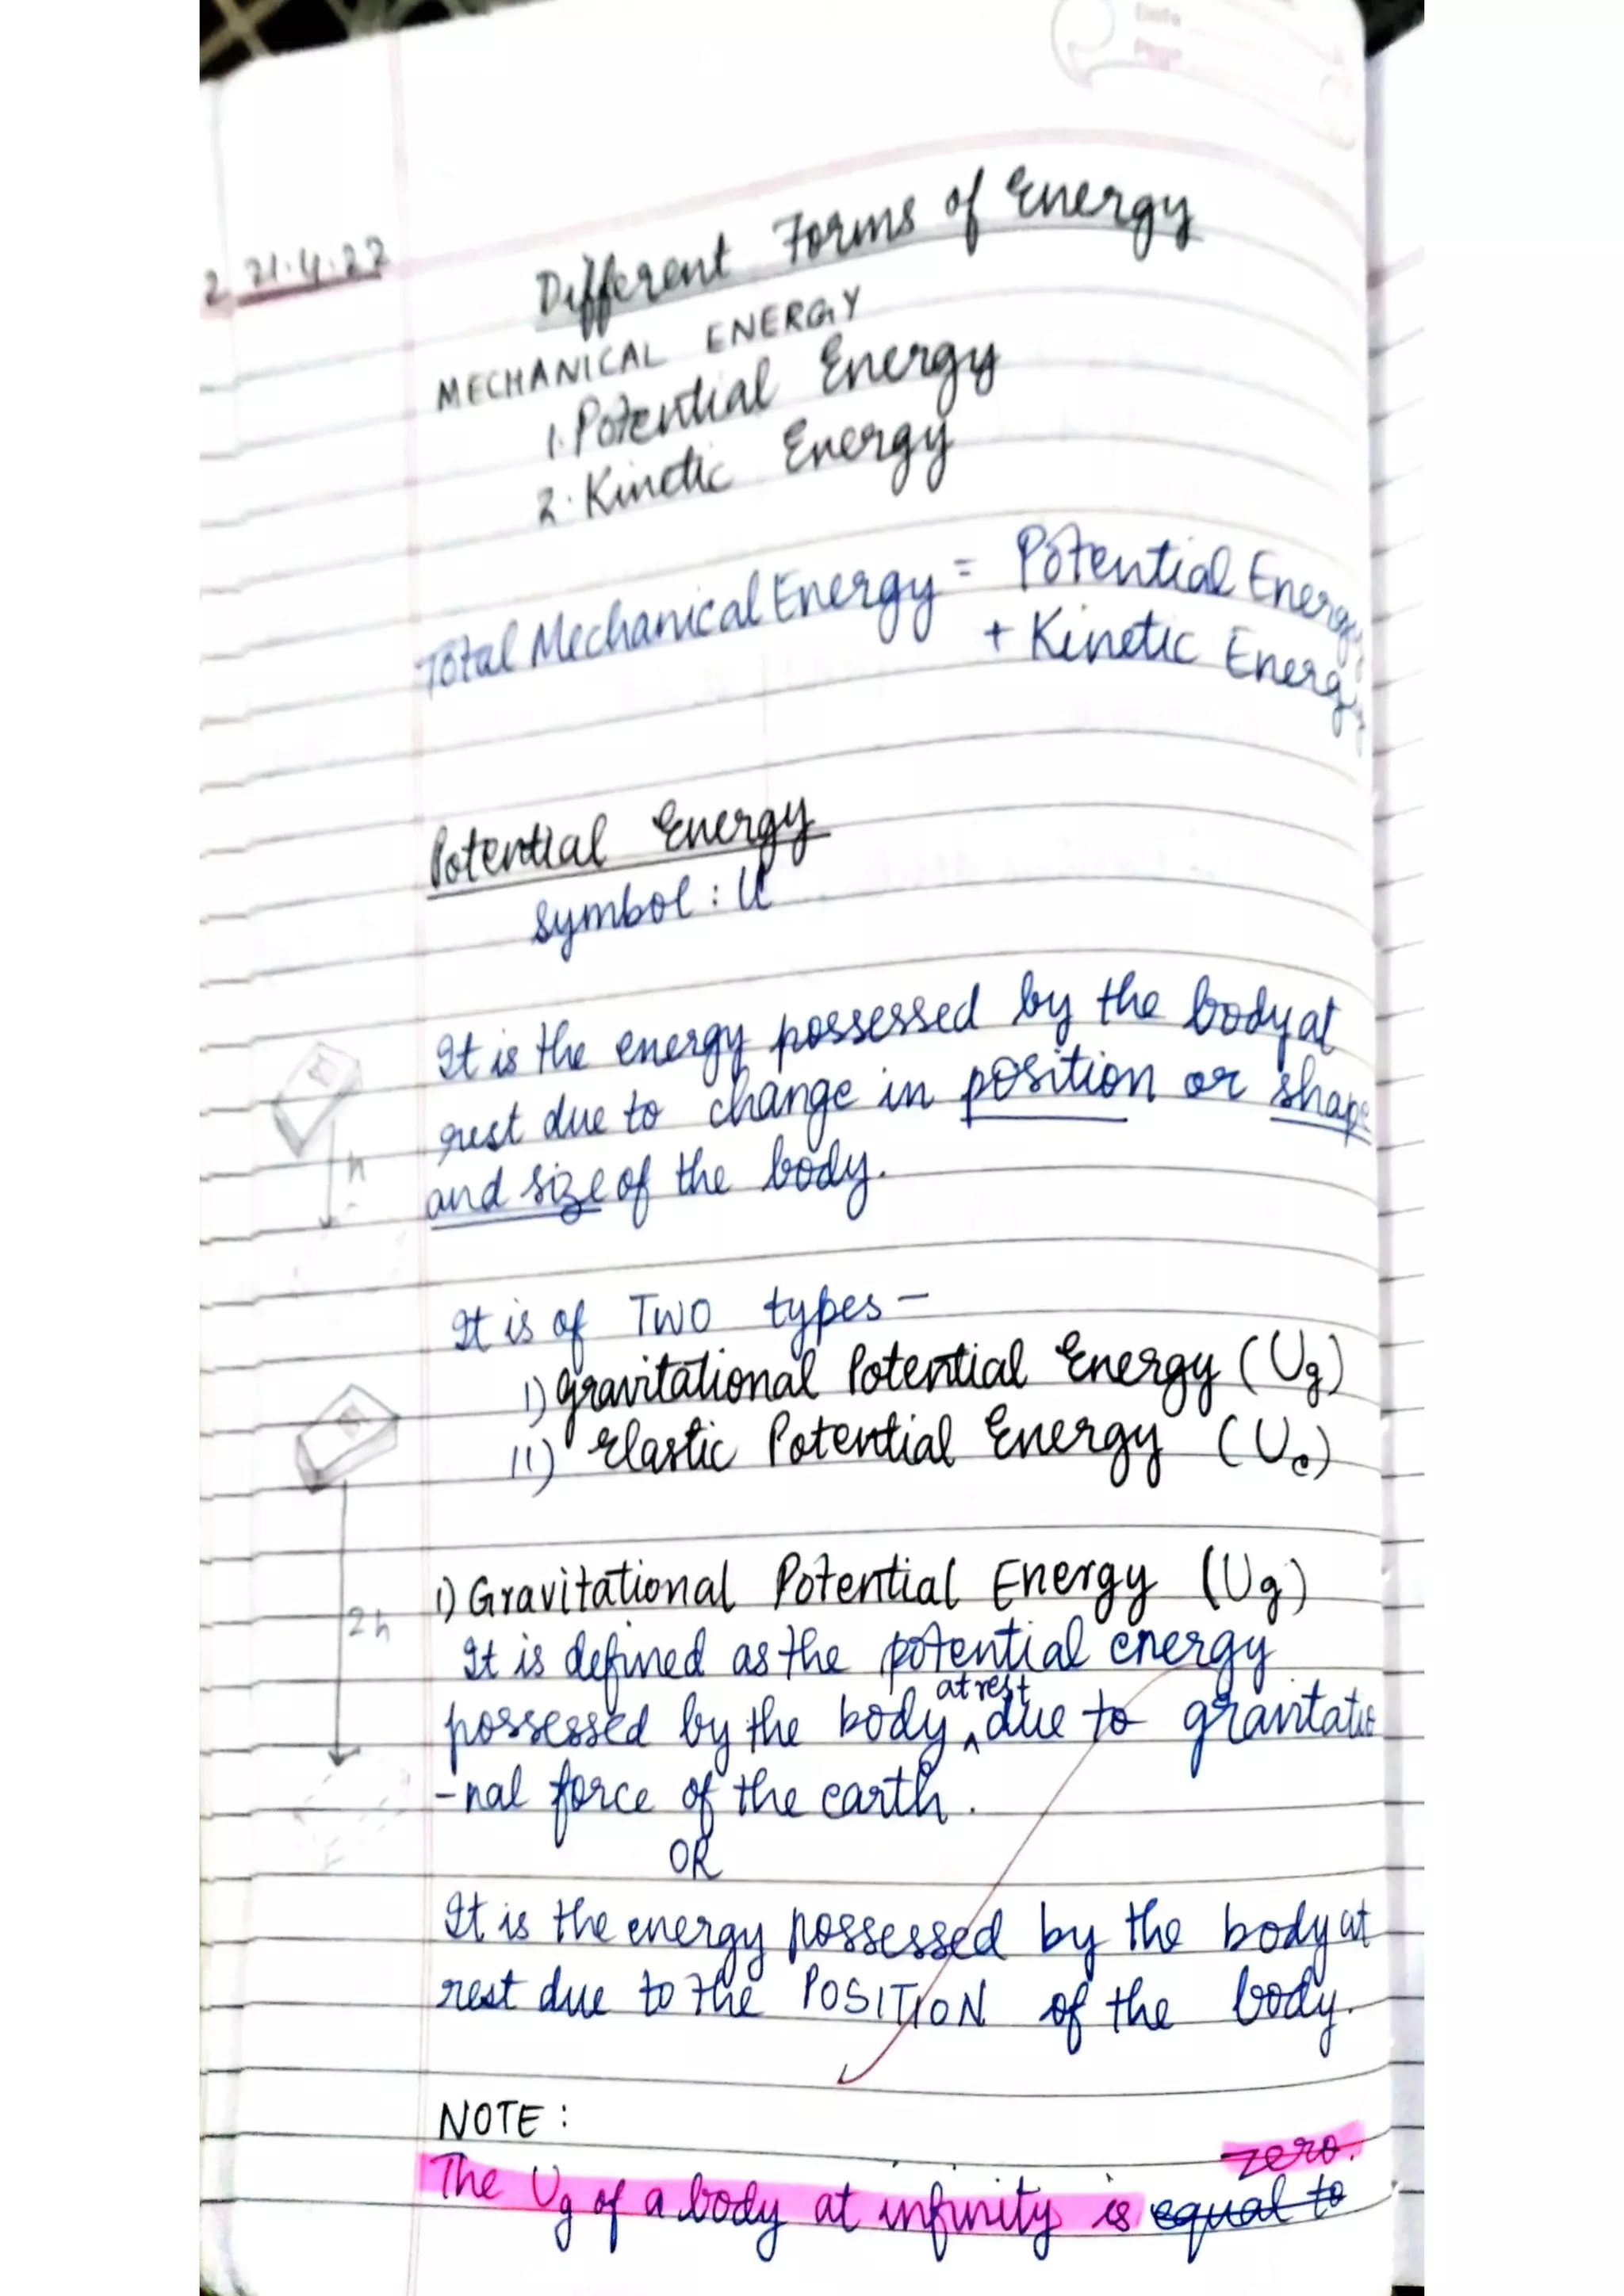 Date
Page
21.4.22
Different Forms of Energy
MECHANICAL ENERGY
1. Potential Energy
2. Kinetic Energy
Total Mechanical Energy = Potential Energy
+ Kinetic Energy
Potential Energy
Symbol : U
It is the energy possessed by the body at
rest due to change in position or shape
and size of the body.
h
It is of TWO types -
i) Gravitational Potential Energy (Ug)
ii) Elastic Potential Energy (Ue)
i) Gravitational Potential Energy (Ug)
2h
It is defined as the potential energy
possessed by the body ^ at rest due to gravitatio
-nal force of the earth.
OR
It is the energy possessed by the body at
rest due to the POSITION of the body.
NOTE :
zero.
The Ug of a body at infinity is equal to